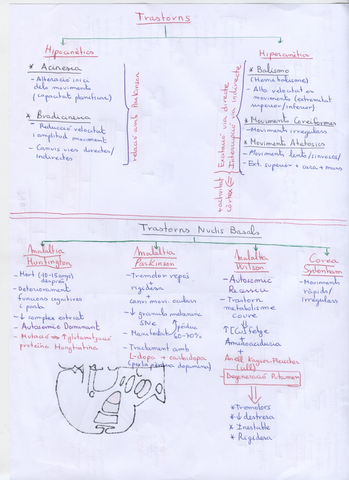 Trastorns
Hipocinètics
* Acinesia
- Alteració inici
dels moviments
(capacitat planificar)
* Bradicinesia
- Reducció velocitat
i amplitud moviment
- Canvis vies directes/
Indirectes
relació amb Parkinson
Hipercinètics
* Balismo
(Hemibalisme)
- Alta velocitat en
moviments (extremitat
superior/inferior)
* Moviments Coreiformes
- Moviments irregulars
* Moviments Atetósics
- Moviments lents/sinuosos/
- Ext. superior + cara + mans
Excitació via directe
Interrupció via indirecte
+ activitat
còrtex
Trastorns Nuclis Basals
Malaltia
Huntington
- Mort (10-15 anys
després)
- Deteriorament
funcions cognitives
i parla
- ↓ complex estriat
- Autosòmic Dominant
- Mutació → ↑ glutamat
proteïna Huntingtina
Malaltia
Parkinson
- Tremolor repòs
+
rigidesa
+
canvi mov. oculars
- ↓ grànuls melanina
SNc
- Manifestació
↑ pèrdua
60-70%
- Tractament amb
L-dopa + carbidopa
Malaltia
Wilson
- Autosòmic
Recessiu
- Trastorn
metabolisme
coure
↑ [Cu] fetge
+
Aminoacidúria
+
Anell Kayser-Fleischer
(ull)
- Degeneració Putamen
* Tremolors
* ↓ destresa
* Inestable
* Rigidesa
Corea
Sydenham
- Moviments
ràpids/
irregulars